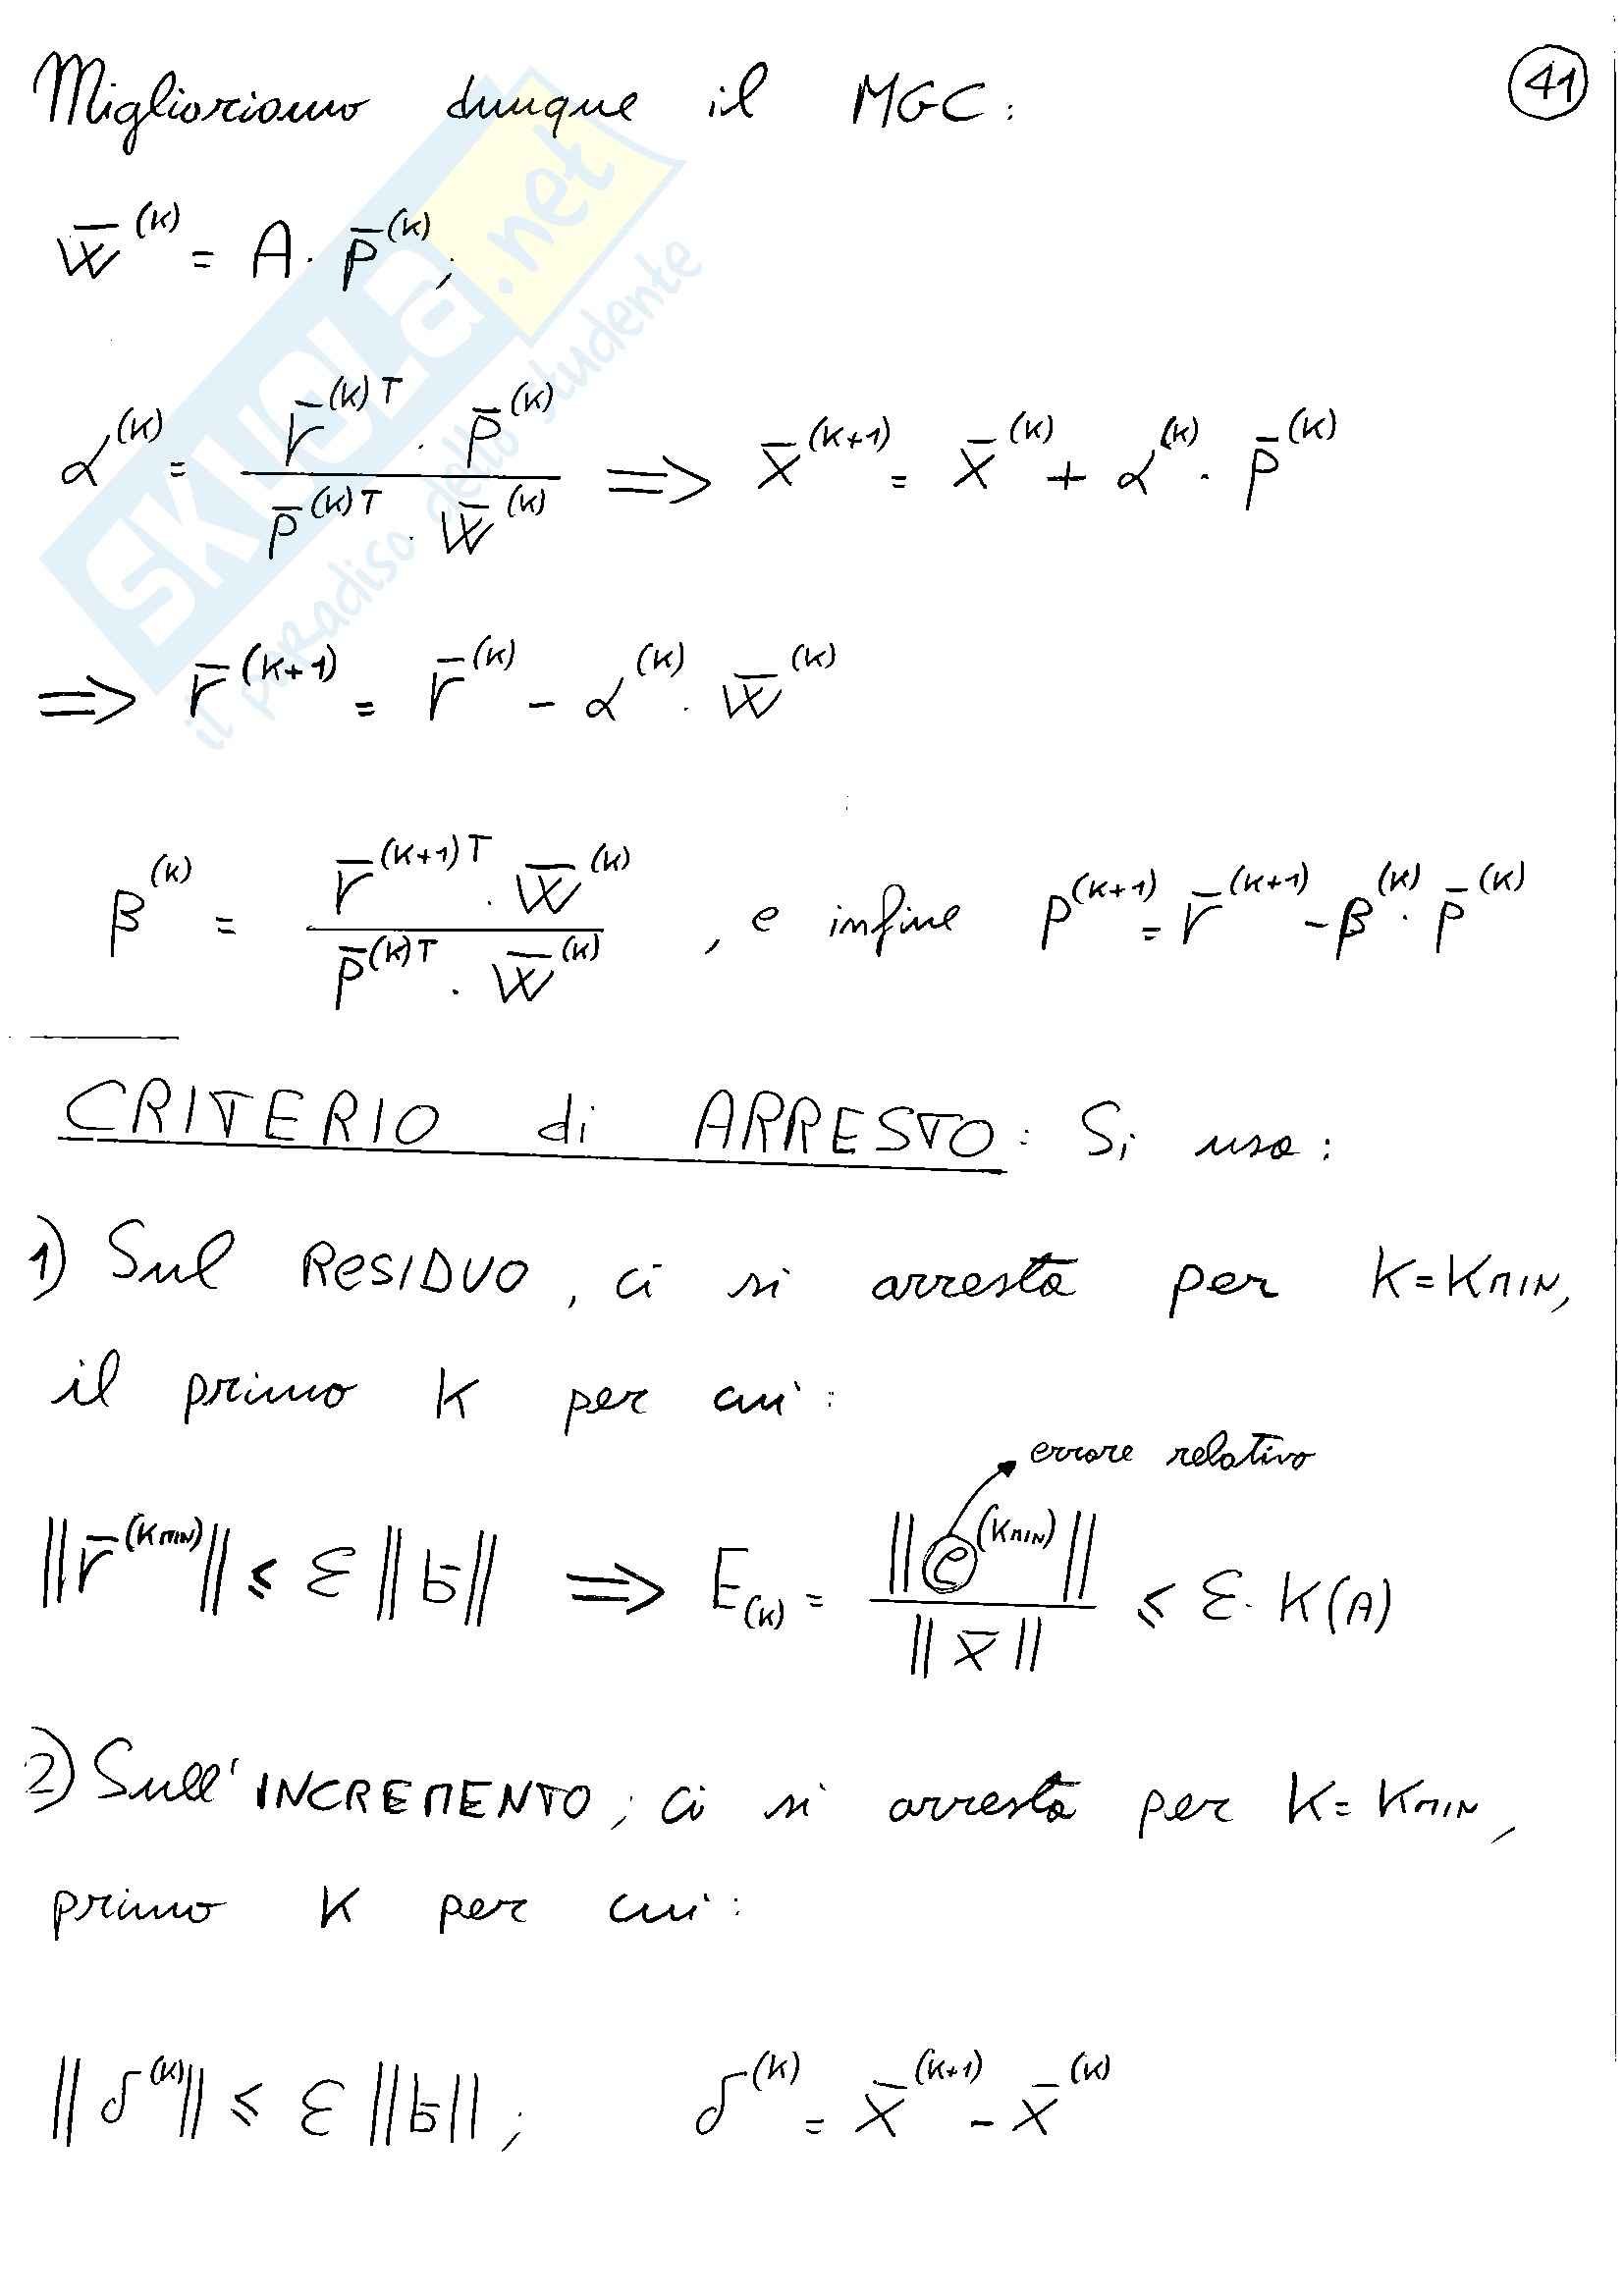 Miglioriamo dunque il MGC: 41
w̄^(k) = A · p̄^(k);
α^(k) = (r̄^(k)T · p̄^(k)) / (p̄^(k)T · w̄^(k)) ⟹ x̄^(k+1) = x̄^(k) + α^(k) · p̄^(k)
⟹ r̄^(k+1) = r̄^(k) - α^(k) · w̄^(k)
β^(k) = (r̄^(k+1)T · w̄^(k)) / (p̄^(k)T · w̄^(k)), e infine p^(k+1) = r̄^(k+1) - β^(k) · p̄^(k)
CRITERIO di ARRESTO: Si usa:
1) Sul RESIDUO, ci si arresta per K=KMIN,
il primo K per cui:
errore relativo
||r̄^(KMIN)|| ≤ ε ||b̄|| ⟹ E(K) = ||e^(KMIN)|| / ||x̄|| ≤ ε · K(A)
2) Sull'INCREMENTO; ci si arresta per K=KMIN,
primo K per cui:
||δ^(k)|| ≤ ε ||b̄||; δ^(k) = x̄^(k+1) - x̄^(k)
SKUOLA.net
il paradiso dello studente